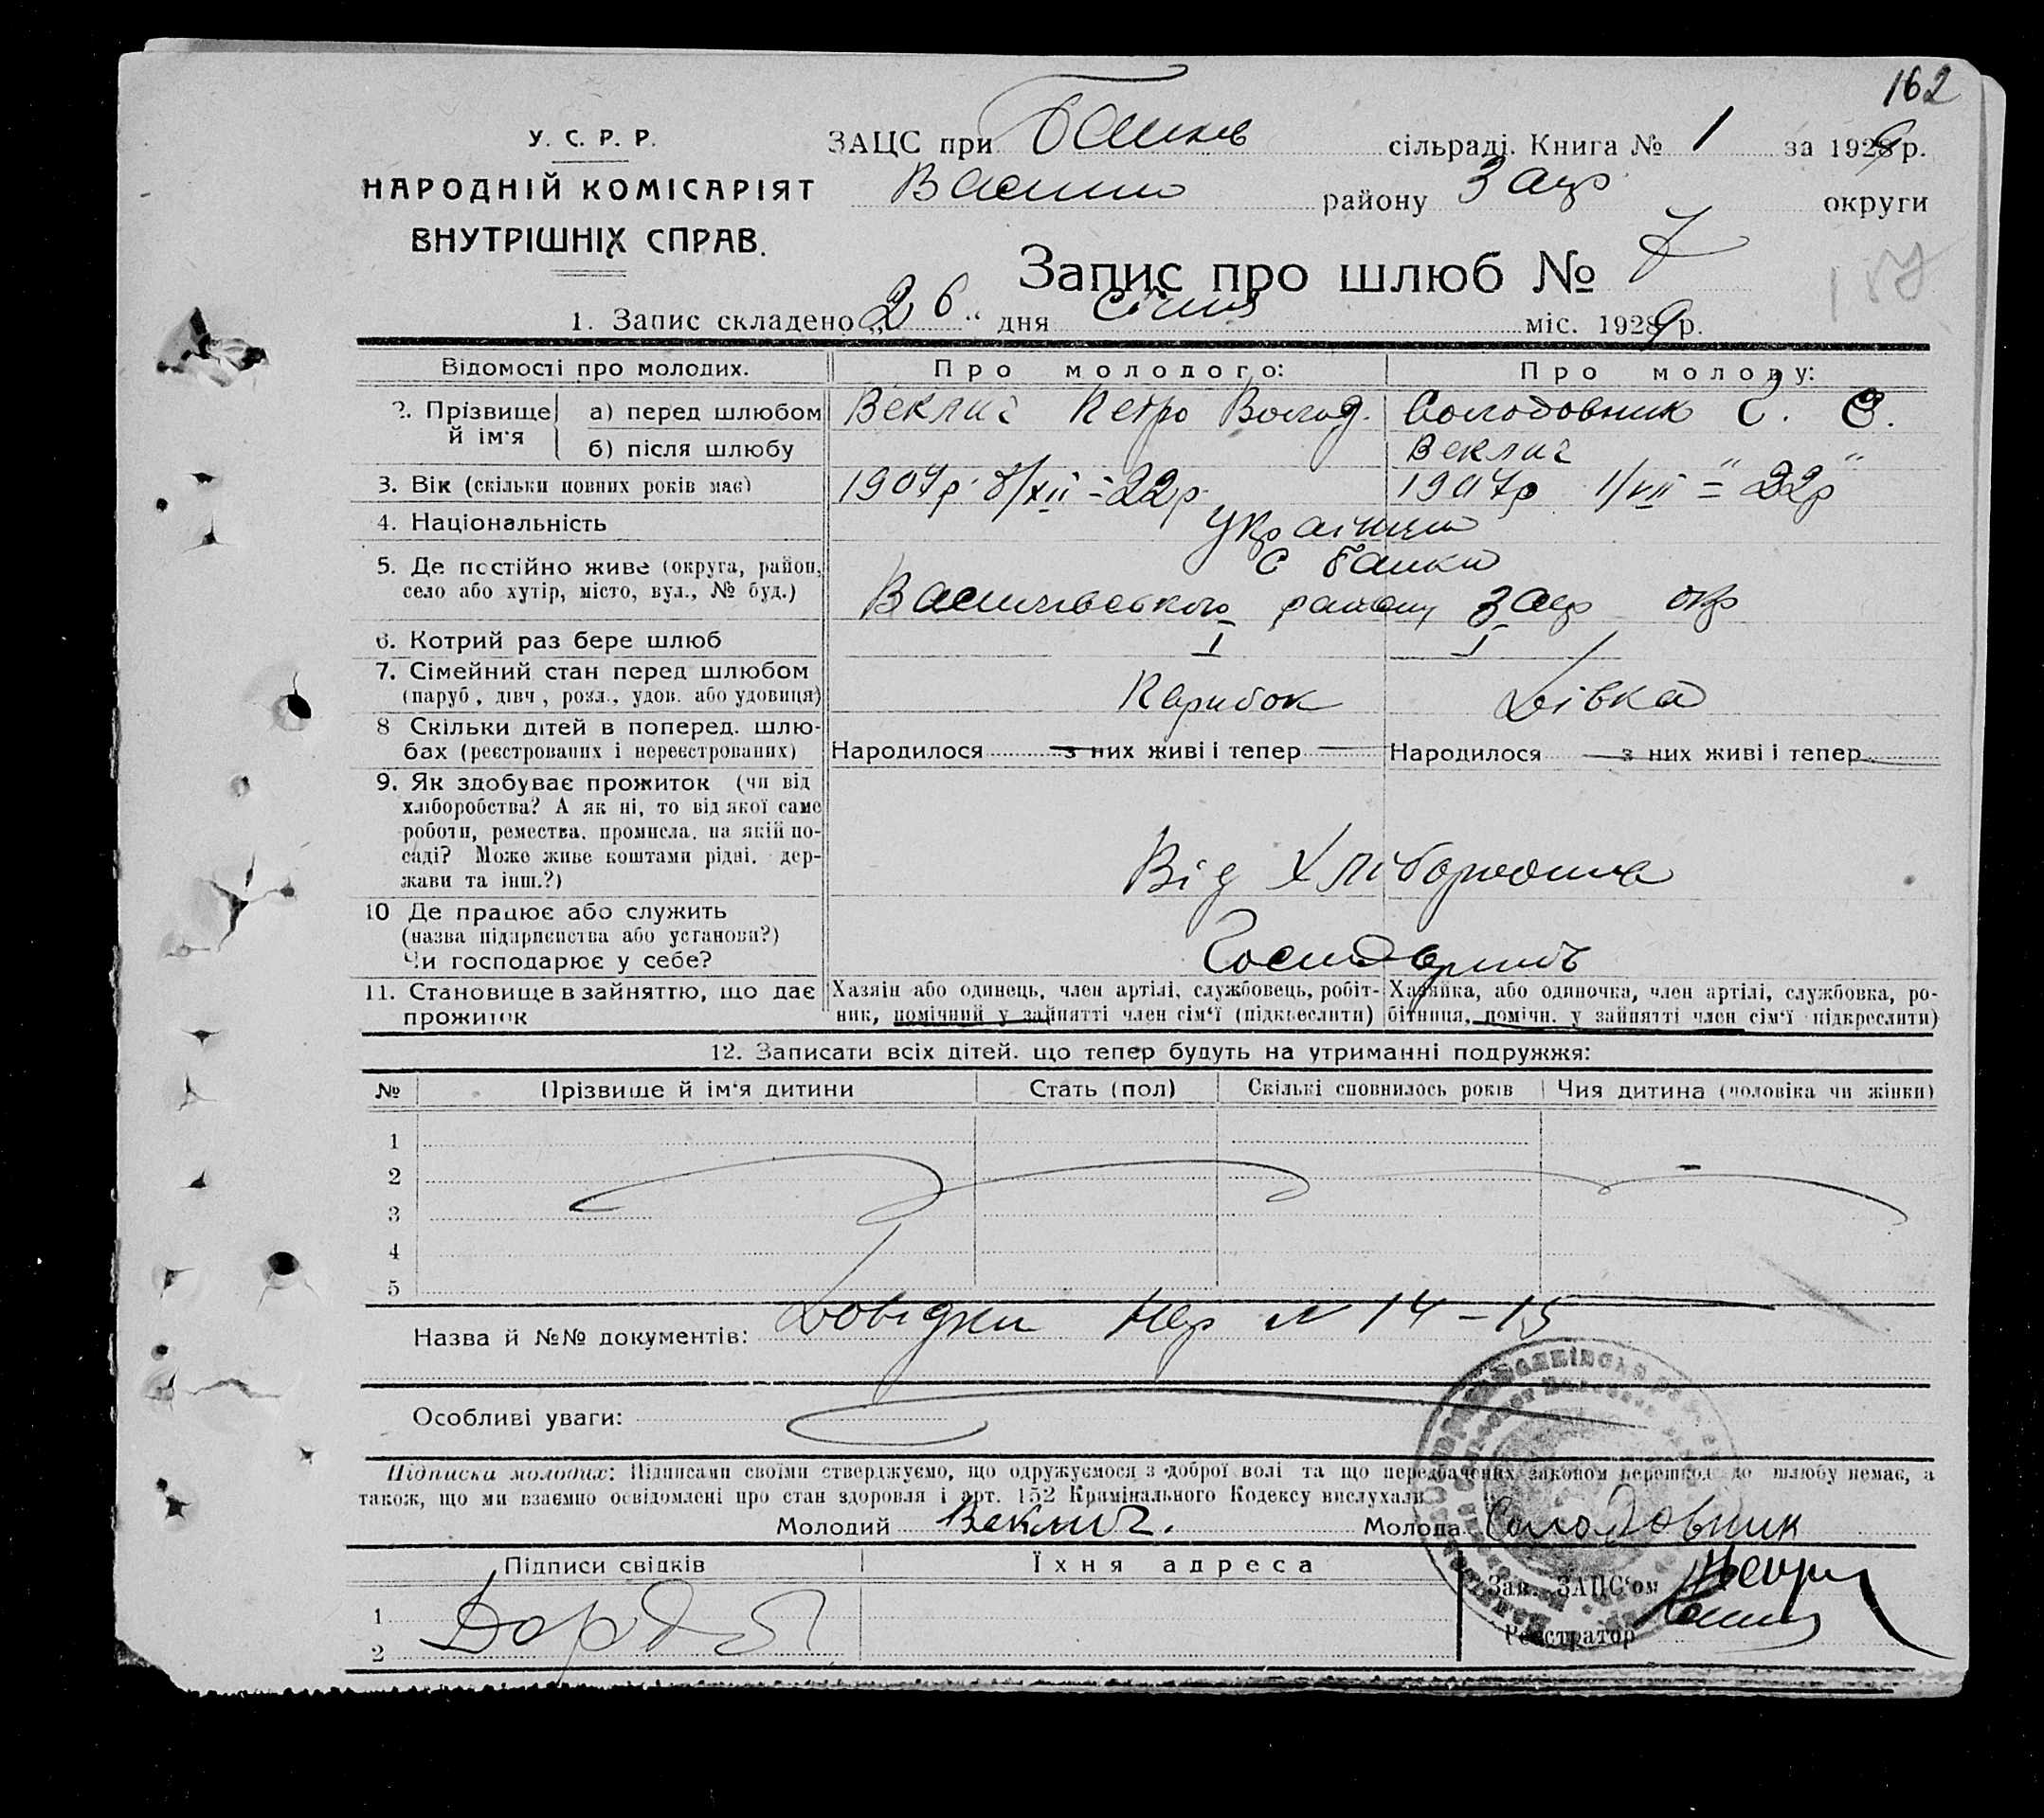 162
У. С. Р. Р.
НАРОДНІЙ КОМІСАРІЯТ
ВНУТРІШНІХ СПРАВ.
ЗАЦС при Балків сільраді. Книга № 1 за 1929 р.
Васили району Запр округи
Запис про шлюб № 7
157
1. Запис складено „26“ дня січня міс. 1929 р.
Відомості про молодих. Про молодого: Про молоду:
2. Прізвище й ім'я а) перед шлюбом Веклич Петро Волод. Солодовник Є.
б) після шлюбу Веклич
3. Вік (скільки повних років має) 1907р. 8/XII = 22р. 1907р 1/VII = 22р
4. Національність українці
5. Де постійно живе (округа, район, с Балки
село або хутір, місто, вул., № буд.) Василівського району Запр окр
6. Котрий раз бере шлюб I I
7. Сімейний стан перед шлюбом
(паруб., дівч., розл., удов. або удовиця) Парубок Дівка
8 Скільки дітей в поперед. шлю-
бах (реєстрованих і нереєстрованих) Народилося з них живі і тепер Народилося з них живі і тепер
9. Як здобуває прожиток (чи від
хліборобства? А як ні, то від якої саме
роботи, ремества, промисла, на якій по-
саді? Може живе коштами рідні, дер-
жави та інш.?) Від хліборобства
10 Де працює або служить
(назва підприємства або установи?)
Чи господарює у себе?
11. Становище в зайнятю, що дає Хазяін або одинець, член артілі, службовець, робіт- Хазяйка, або одиночка, член артілі, службовка, ро-
прожиток ник, помічний у зайнятті член сім'ї (підкреслити) бітниця, помічн. у зайнятті член сім'ї підкреслити)
12. Записати всіх дітей. що тепер будуть на утриманні подружжя:
№ Прізвище й ім'я дитини Стать (пол) Скількі сповнилось років Чия дитина (чоловіка чи жінки)
1
2
3
4
5
Назва й №№ документів: Довідки N 14-15
Особливі уваги:
Підписи молодих: Підписами своїми стверджуємо, що одружуємося з доброї волі та що передбачених законом перешкод до шлюбу немає, а
також, що ми взаємно освідомлені про стан здоровля і арт. 152 Крамінального Кодексу вислухали
Молодий Веклич. Молода Солодовник
Підписи свідків Їхня адреса
Зав. ЗАЦС'ом
1
2
Реєстратор